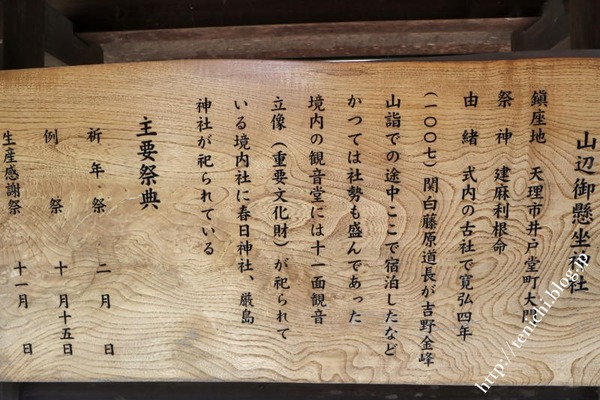 山辺御懸坐神社
鎮座地 天理市井戸堂町大門
祭神 建麻利根命
由緒 式内の古社で寛弘四年
(一〇〇七)関白藤原道長が吉野金峰
山詣での途中ここで宿泊したなど
かつては社勢も盛んであった
境内の観音堂には十一面観音
立像(重要文化財)が祀られて
いる境内社に春日神社、厳島
神社が祀られている
主要祭典
祈年祭 二月 日
例祭 十月十五日
生産感謝祭 十一月 日
http://tenichi.blog.jp